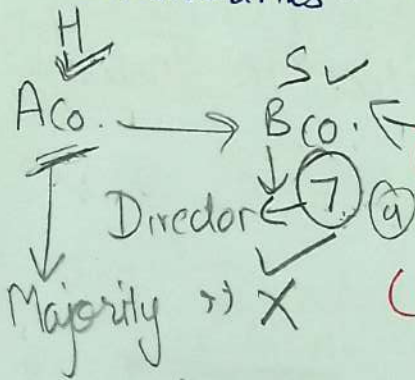 H
S
A Co. B Co.
Director 7
Majority " X